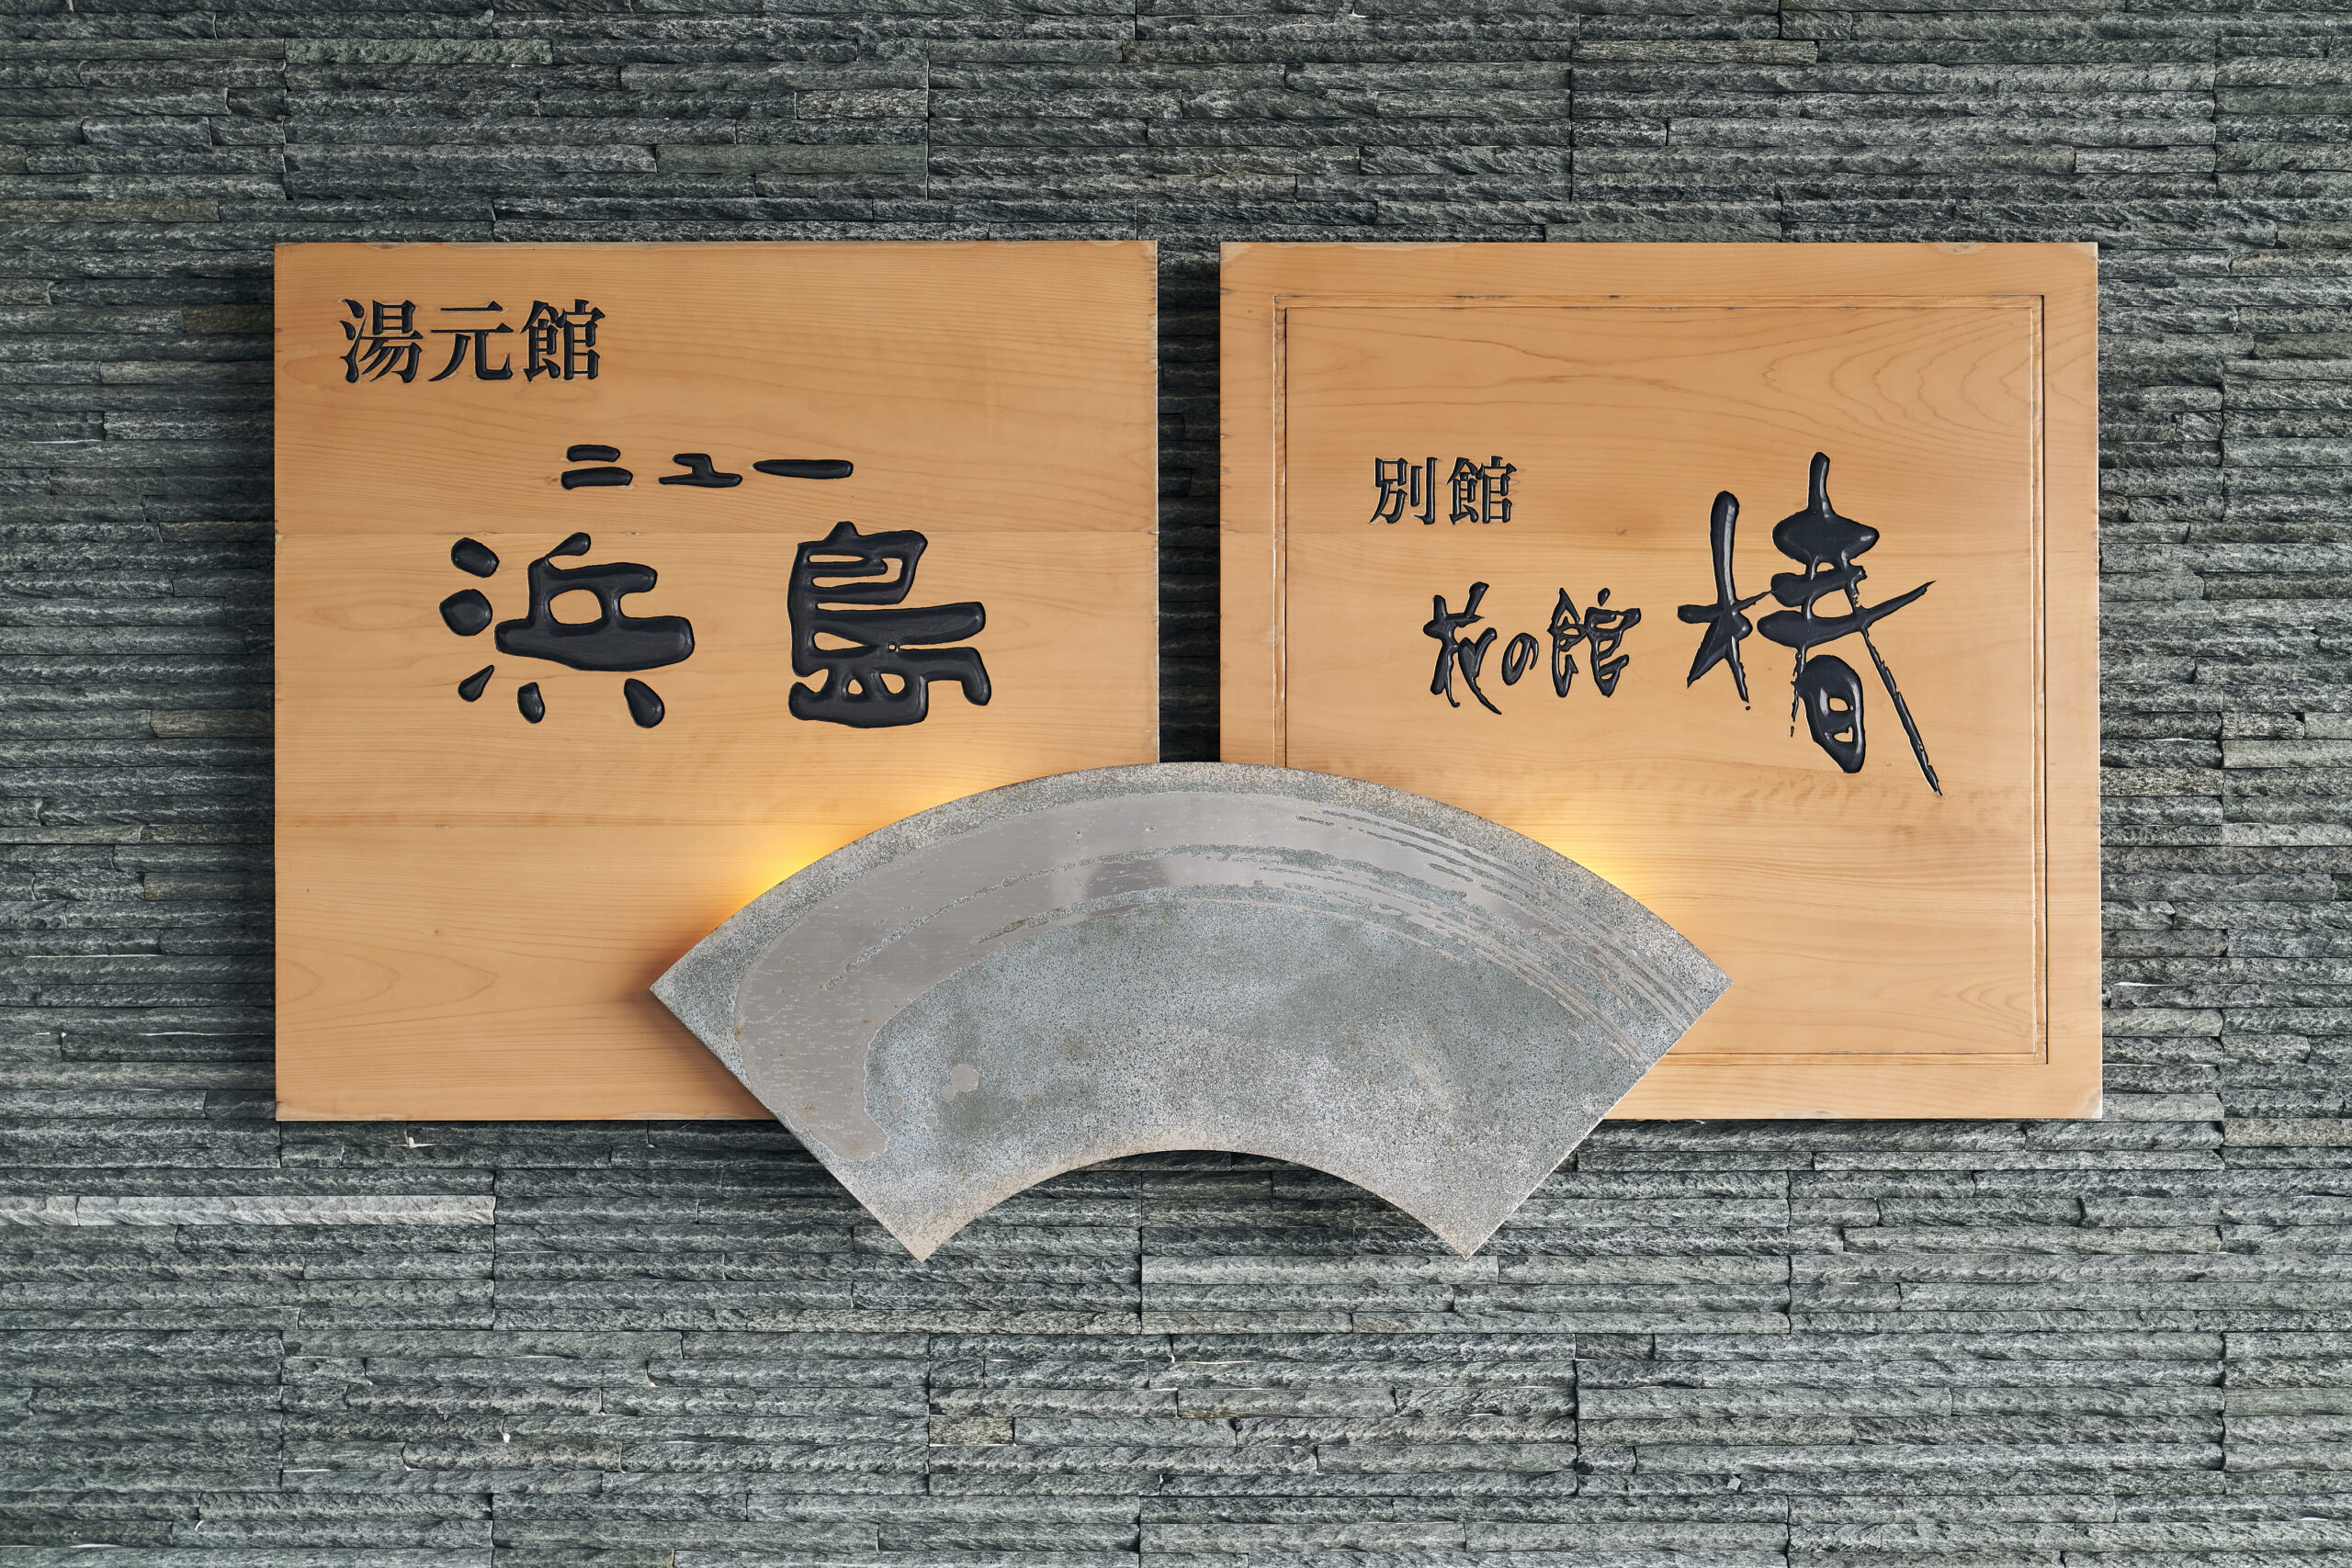 湯元館
ニュー
浜島
別館
花の館 椿